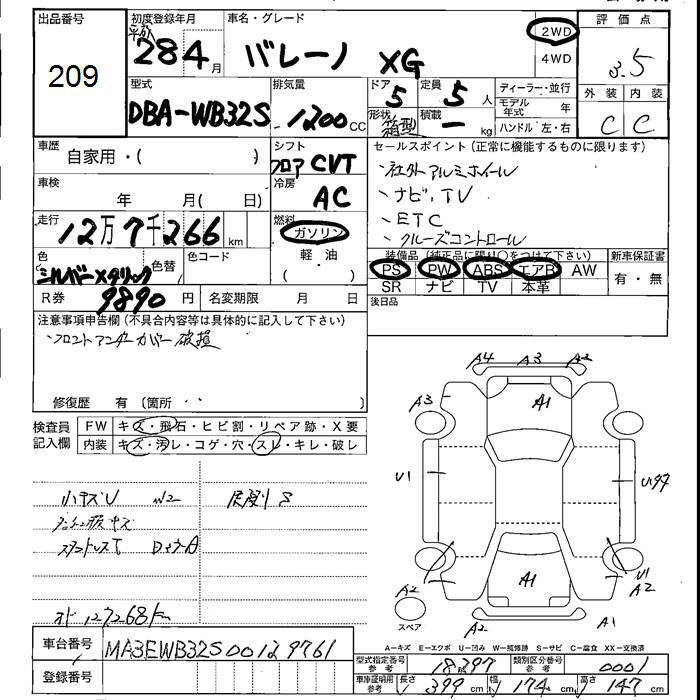 出品番号
209
初度登録年月
平成
28 4月
車名・グレード
バレーノ XG
2WD
4WD
評価点
3.5
外装 内装
C C
型式
DBA-WB32S
排気量
1200cc
ドア
5
定員
5人
形状
箱型
積載
ー kg
ディーラー・並行
モデル年式 年
ハンドル 左・右
車歴
自家用・( )
シフト
フロア CVT
セールスポイント(正常に機能するものに限ります)
・社外アルミホイール
・ナビ、TV
・ETC
・クルーズコントロール
車検
年 月( 日)
冷房
AC
走行
12万7千266km
燃料
ガソリン
軽・油
( )
色
シルバーメタリック
色替
色コード
装備品(純正品に限り○をつけて下さい)
PS PW ABS エアB AW
SR ナビ TV 本革
新車保証書
有・無
R券
9890円
名変期限 月 日
後日品
注意事項申告欄(不具合内容等は具体的に記入して下さい)
・フロントアンダーカバー破損
修復歴 有(箇所
検査員記入欄
FW キズ・飛石・ヒビ割・リペア跡・X要
内装 キズ・汚レ・コゲ・穴・スレ・キレ・破レ
小キズU
A4 A3 A2
A3
A1
U1
A1
U1
A2
A2
スペア
A2
A1
オド127268km
A=キズ E=エクボ U=凹み W=補修跡 S=サビ C=腐食 XX=交換済
車台番号
MA3EWB32S00129761
登録番号
型式指定番号
参考
18297
類別区分番号
参考
0001
車庫証明用
参考
長さ
399cm
幅
174cm
高さ
147cm